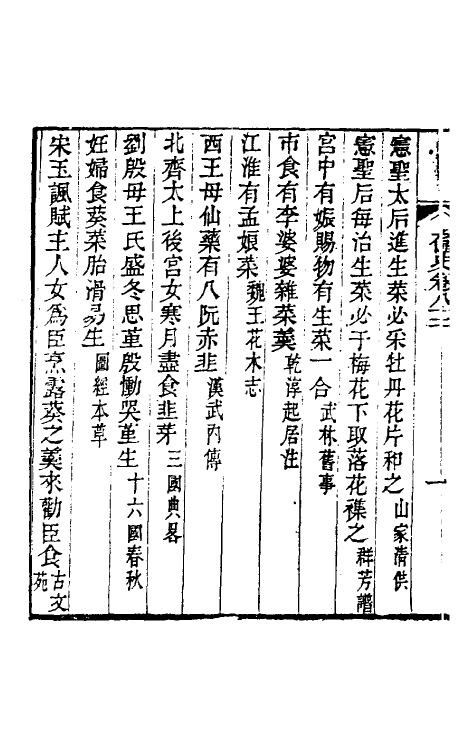 憲聖太后進生菜必采牡丹花片和之山家清供
憲聖后每治生菜必于梅花下取落花襍之群芳譜
宮中有娠賜物有生菜一合武林舊事
市食有李婆婆雜菜羹乾淳起居注
江淮有孟娘菜魏王花木志
西王母仙藥有八阮赤韭漢武內傳
北齊太上後宮女寒月盡食韭芽三國典畧
劉殷母王氏盛冬思堇殷慟哭堇生十六國春秋
妊婦食葵菜胎滑易生圖經本草
宋玉諷賦主人女爲臣烹露葵之羹來勸臣食古文苑
一